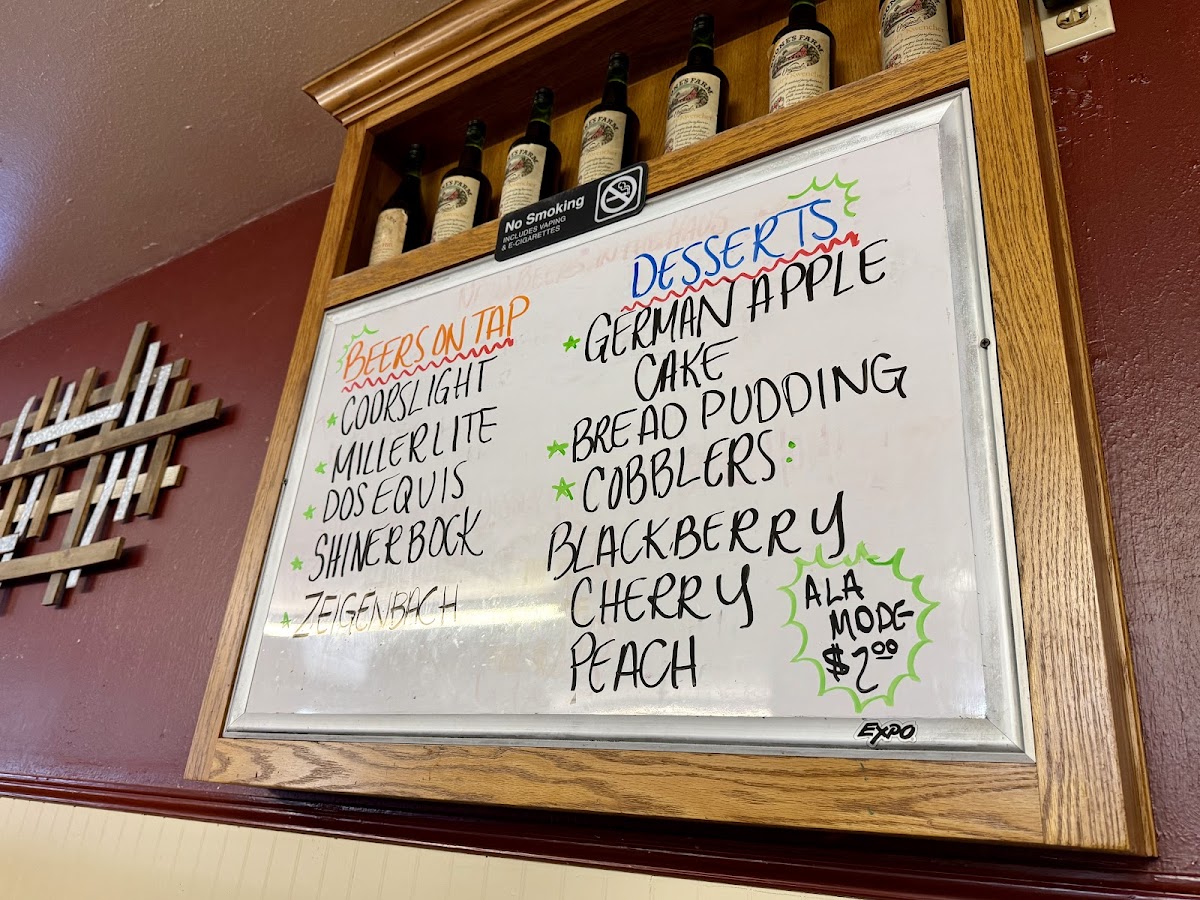 No Smoking
INCLUDES VAPING
& E-CIGARETTES
BEERS ON TAP
COORSLIGHT
MILLER LITE
DOS EQUIS
SHINER BOCK
ZEIGENBACH
DESSERTS
GERMAN APPLE
CAKE
BREAD PUDDING
COBBLERS:
BLACKBERRY
CHERRY
PEACH
A LA
MODE-
$2.00
EXPO